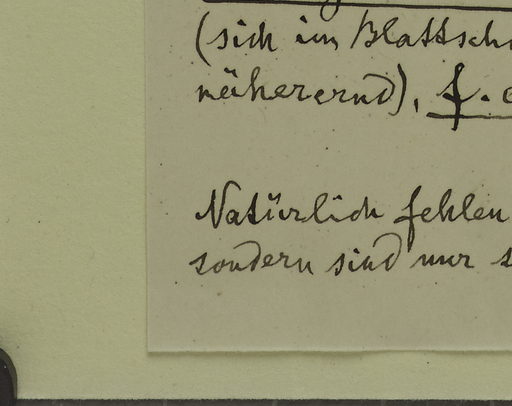 (sich im Blattsch
näherernd), f. c
Natürlich fehlen
sondern sind nur s